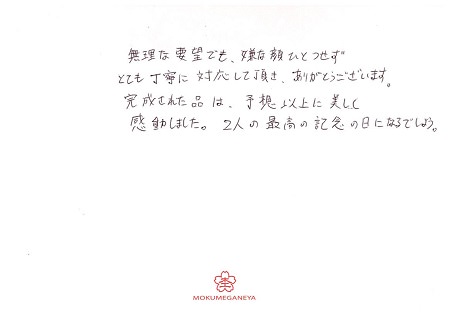 無理な要望でも、嫌な顔ひとつせず
とても丁寧に対応して頂き、ありがとうございます。
完成された品は、予想以上に美しく
感動しました。2人の最高の記念の日になるでしょう。
MOKUMEGANEYA